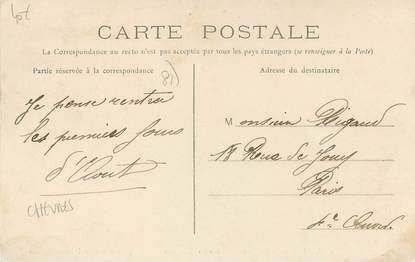 Lot
CARTE POSTALE
La Correspondance au recto n'est pas acceptée par tous les pays étrangers (se renseigner à la Poste)
Partie réservée à la correspondance
81)
Adresse du destinataire
Je pense rentrer
les premiers Jours
d'Aout
CHEVRES
Monsieur Rigaud
18 Rue de Jouy
Paris